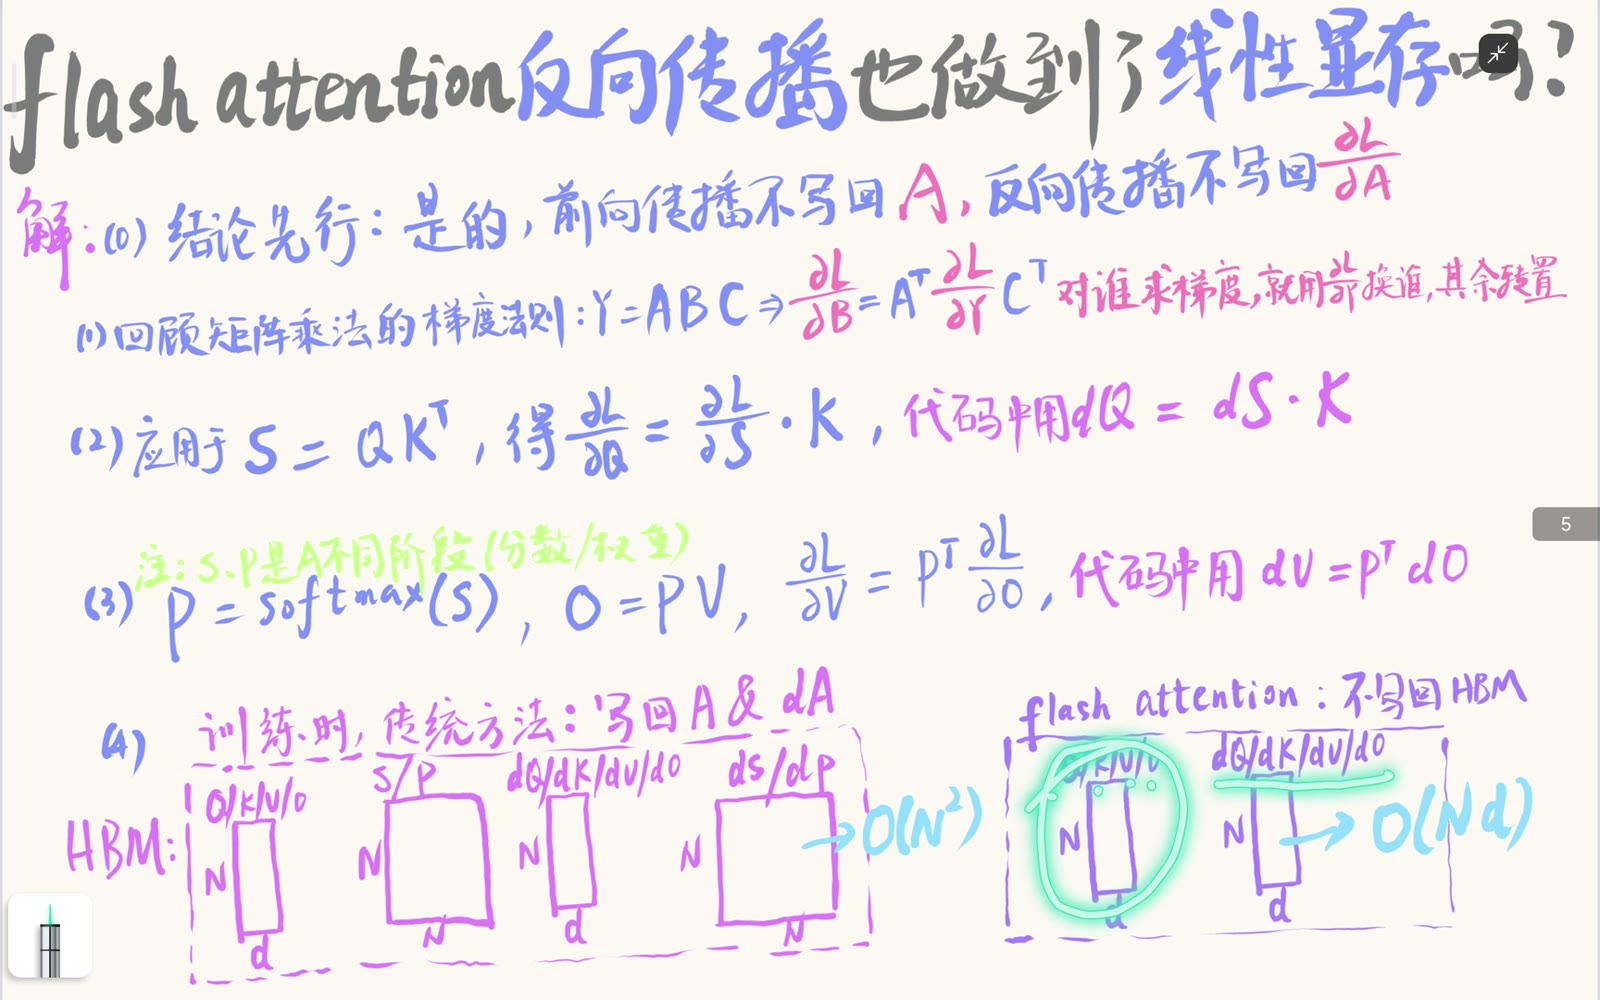 flash attention反向传播也做到了线性显存吗?
解:(0) 结论先行:是的,前向传播不写回 A,反向传播不写回 ∂L/∂A
(1) 回顾矩阵乘法的梯度法则:Y=ABC ⇒ ∂L/∂B = Aᵀ ∂L/∂Y Cᵀ 对谁求梯度,就用∂L/∂Y换谁,其余转置
(2) 应用于 S = QKᵀ,得 ∂L/∂Q = ∂L/∂S · K,代码中用dQ = dS · K
注:S、P是A不同阶段(分数/权重)
(3) P = softmax(S),O = PV,∂L/∂V = Pᵀ ∂L/∂O,代码中用 dV = Pᵀ dO
(4) 训练时,传统方法:写回A & dA
flash attention:不写回HBM
HBM:
Q/K/V/O
N
d
S/P
N
N
dQ/dK/dV/dO
N
d
dS/dP
N
N
→O(N²)
Q/K/V/O
N
d
dQ/dK/dV/dO
N
d
→O(Nd)
5